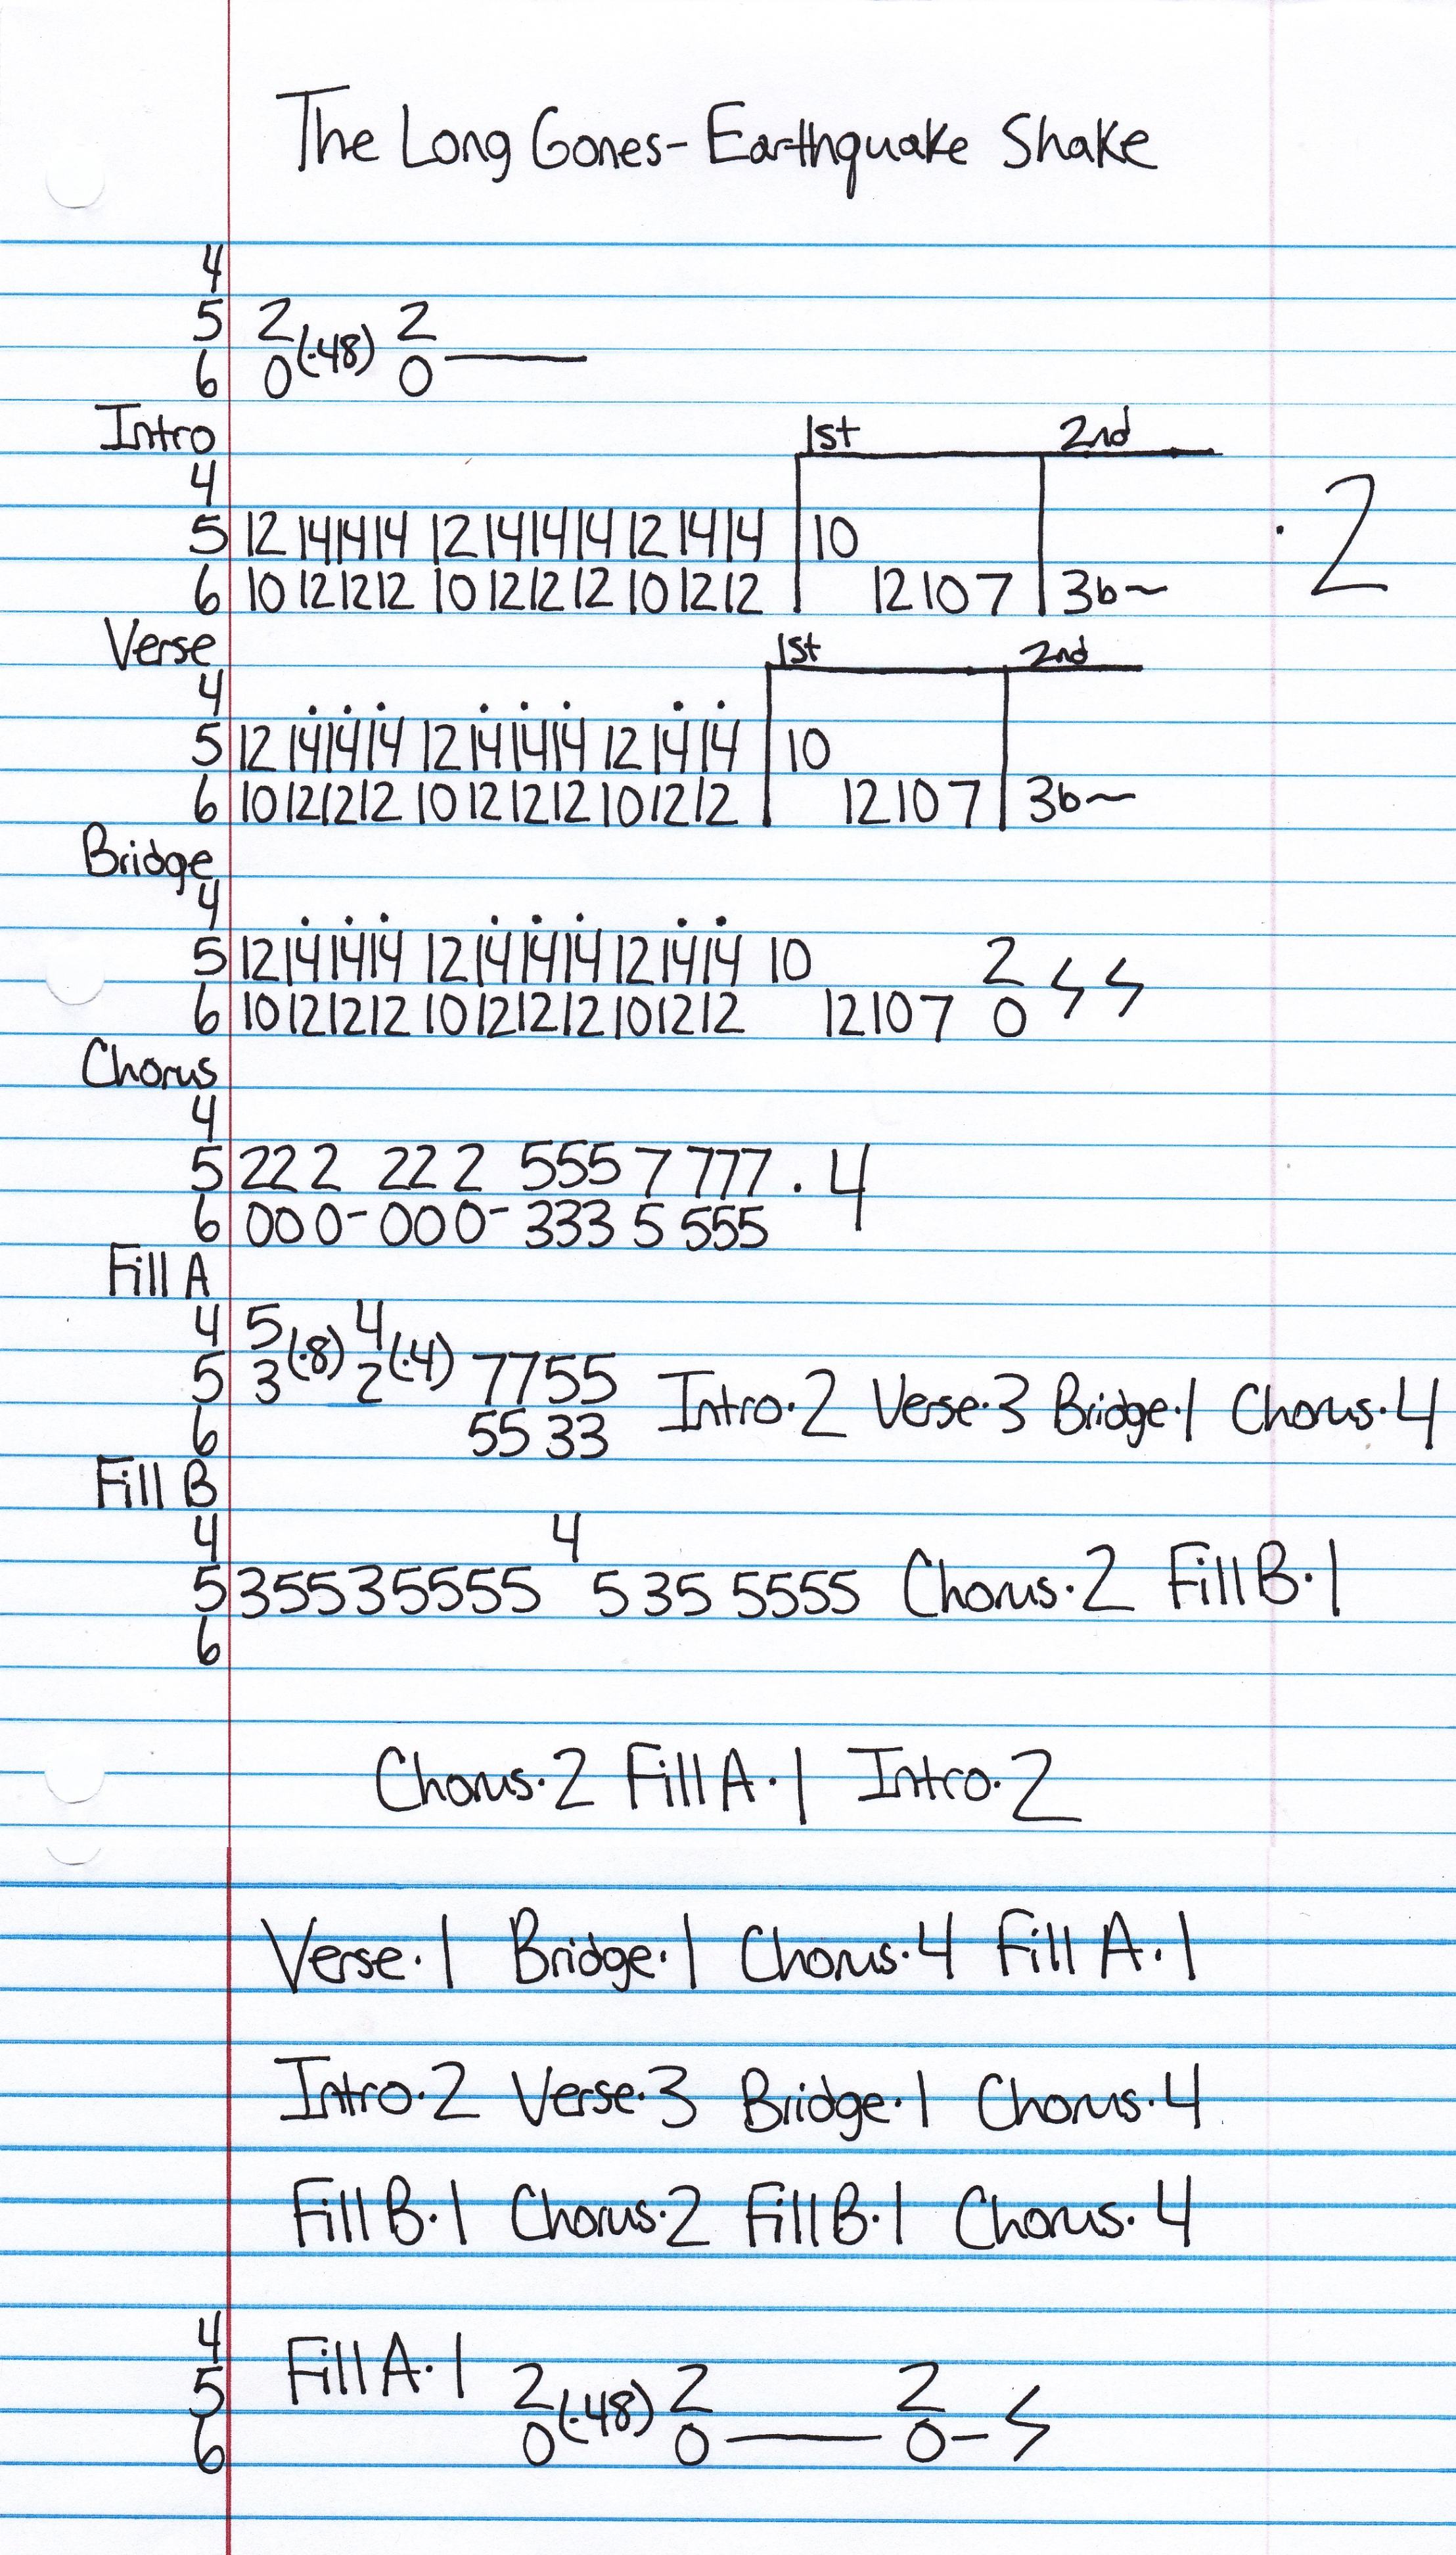 The Long Gones- Earthquake Shake
4
5 2 (·48) 2
6 0 0 ———
Intro 1st 2nd
4
5 12 14 14 14 12 14 14 14 12 14 14 10 · 2
6 10 12 12 12 10 12 12 12 10 12 12 12 10 7 3b~
Verse 1st 2nd
4
5 12 14 14 14 12 14 14 14 12 14 14 10
6 10 12 12 12 10 12 12 12 10 12 12 12 10 7 3b~
Bridge
4
5 12 14 14 14 12 14 14 14 12 14 14 10 2
6 10 12 12 12 10 12 12 12 10 12 12 12 10 7 0
Chorus
4
5 22 2 22 2 555 7 777 · 4
6 00 0- 00 0- 333 5 555
Fill A
4 5 (·8) 4 (·4)
5 3 2 7755 Intro·2 Verse·3 Bridge·1 Chorus·4
6 55 33
Fill B
4 4
5 3553 5555 5 35 5555 Chorus·2 Fill B·1
6
Chorus·2 Fill A·1 Intro·2
Verse·1 Bridge·1 Chorus·4 Fill A·1
Intro·2 Verse·3 Bridge·1 Chorus·4
Fill B·1 Chorus·2 Fill B·1 Chorus·4
4 Fill A·1
5 2 (·48) 2 2
6 0 0 ——— 0-